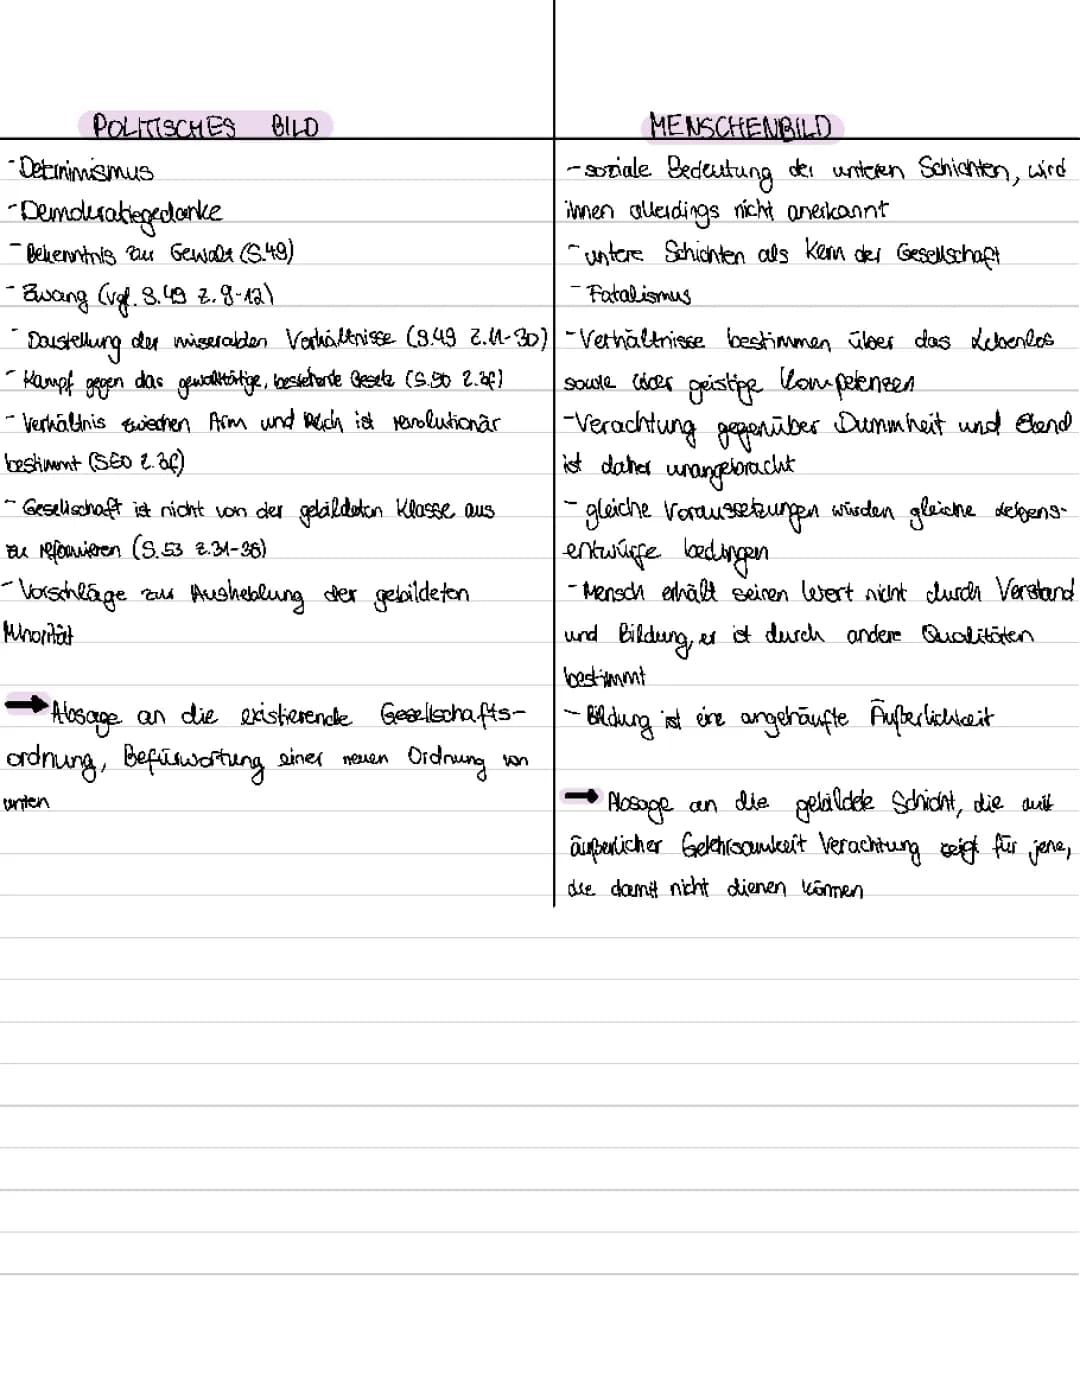 POLITISCHES BILD
- Deterinimismus
- Demokratiegedanke
- Bekenntnis zur Gewalt (S.49)
- Zwang (vgl. S.49 Z.9-12)
- Darstellung der miserablen Verhältnisse (S.49 Z.11-30)
- Kampf gegen das gewalttätige, bestehende Gesetz (S.50 Z.2f)
- Verhältnis zwischen Arm und Reich ist revolutionär
bestimmt (S.50 Z.2f)
- Gesellschaft ist nicht von der gebildeten Klasse aus
zu reformieren (S.53 Z.31-36)
- Vorschläge zur Aushebung der gebildeten
Minorität
→ Absage an die existierende Gesellschafts-
ordnung, Befürwortung einer neuen Ordnung von
unten
MENSCHENBILD
- soziale Bedeutung der unteren Schichten, wird
ihnen allerdings nicht anerkannt
- untere Schichten als Kern der Gesellschaft
- Fatalismus
- Verhältnisse bestimmen über das Lebenlos
sowie über geistige Kompetenzen
- Verachtung gegenüber Dummheit und Elend
ist daher unangebracht
- gleiche Voraussetzungen würden gleiche Lebens-
entwürfe bedingen
- Mensch erhält seinen Wert nicht durch Verstand
und Bildung, er ist durch andere Qualitäten
bestimmt
- Bildung ist eine angehäufte Äußerlichkeit
→ Absage an die gebildete Schicht, die mit
äußerlicher Gelehrsamkeit Verachtung zeigt für jene,
die damit nicht dienen können